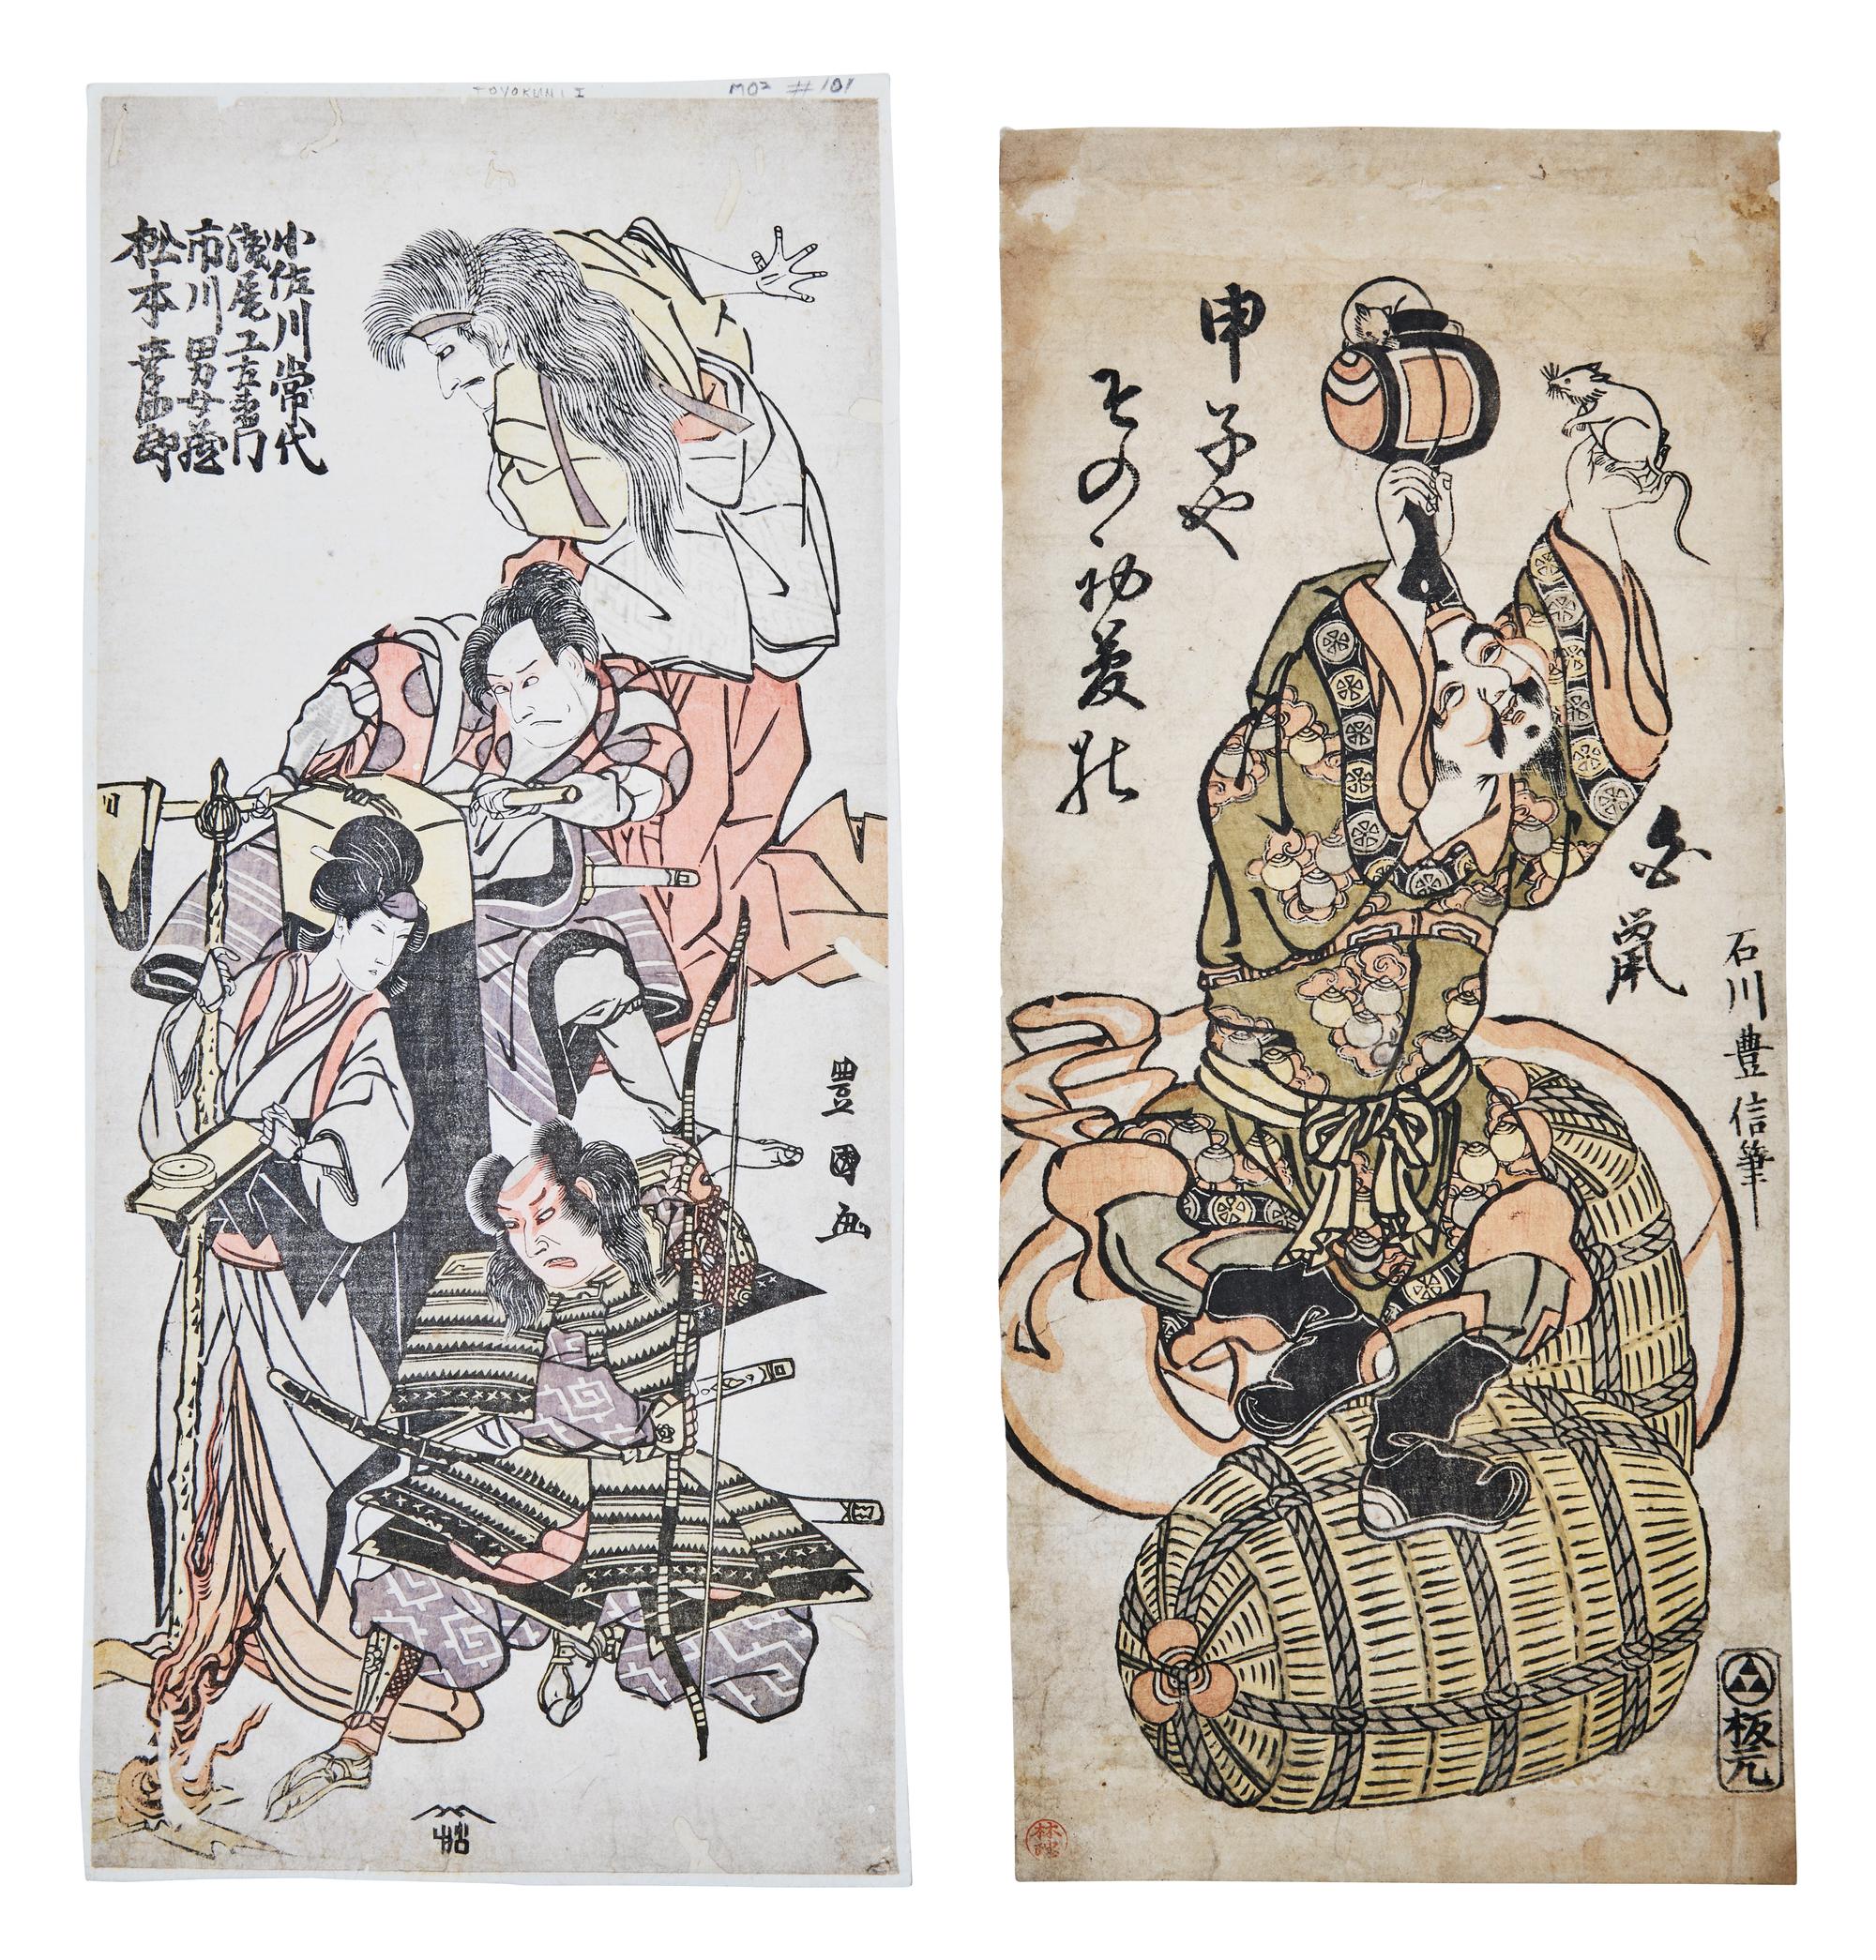 TOYOKUNI I
MO2 #101
小佐川常世
浅尾工左衛門
市川男女蔵
松本幸四郎
豊国画
甲子や
その初夢の
白鼠
石川豊信筆
板元